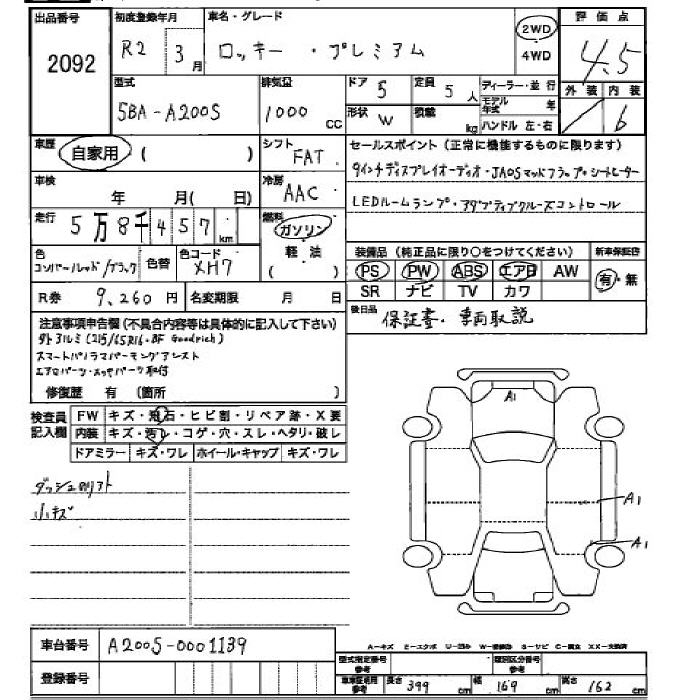 出品番号 初度登録年月 車名・グレード 評価点
2092 R2 3月 ロッキー・プレミアム 2WD 4WD 4.5
型式 排気量 ドア 定員 ディーラー・並行 外装 内装
5BA-A200S 1000 CC 5 5人 モデル年式 年 6
形状 W 積載 kg ハンドル 左・右
車歴 自家用 ( ) シフト FAT セールスポイント (正常に機能するものに限ります)
9インチディスプレイオーディオ・JAOSマッドフラップ・シートヒーター
車検 年 月( 日) 冷房 AAC LEDルームランプ・アダプティブクルーズコントロール
走行 5万8千457km 燃料 ガソリン 軽油 ( )
装備品 (純正品に限り○をつけてください) 新車保証書
色 コンパーノレッド/ブラック 色替 色コード XH7 PS PW ABS エアB AW 有・無
SR ナビ TV カワ
R券 9,260円 名変期限 月 日 後日品 保証書・車両取説
注意事項申告欄 (不具合内容等は具体的に記入して下さい)
タト アルミ (215/65R16・BF Goodrich)
スマートパノラマパーキングアシスト
エアロパーツ・メッキパーツ取付
修復歴 有 (箇所 )
検査員記入欄 FW キズ・飛石・ヒビ割・リペア跡・X要
内装 キズ・汚レ・コゲ・穴・スレ・ヘタリ・破レ
ドアミラー キズ・ワレ ホイール・キャップ キズ・ワレ
A1
ダッシュのリフト
小キズ
A1
A1
車台番号 A200S-0001139
A-キズ E-エクボ U-凹み W-補修跡 S-サビ C-腐食 XX-交換済
登録番号 型式指定番号 参考 類別区分番号 参考
車庫証明用 参考 長さ 399cm 幅 169cm 高さ 162cm